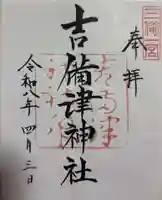 奉拝
三備一宮
吉備津神社
令和八年四月三日